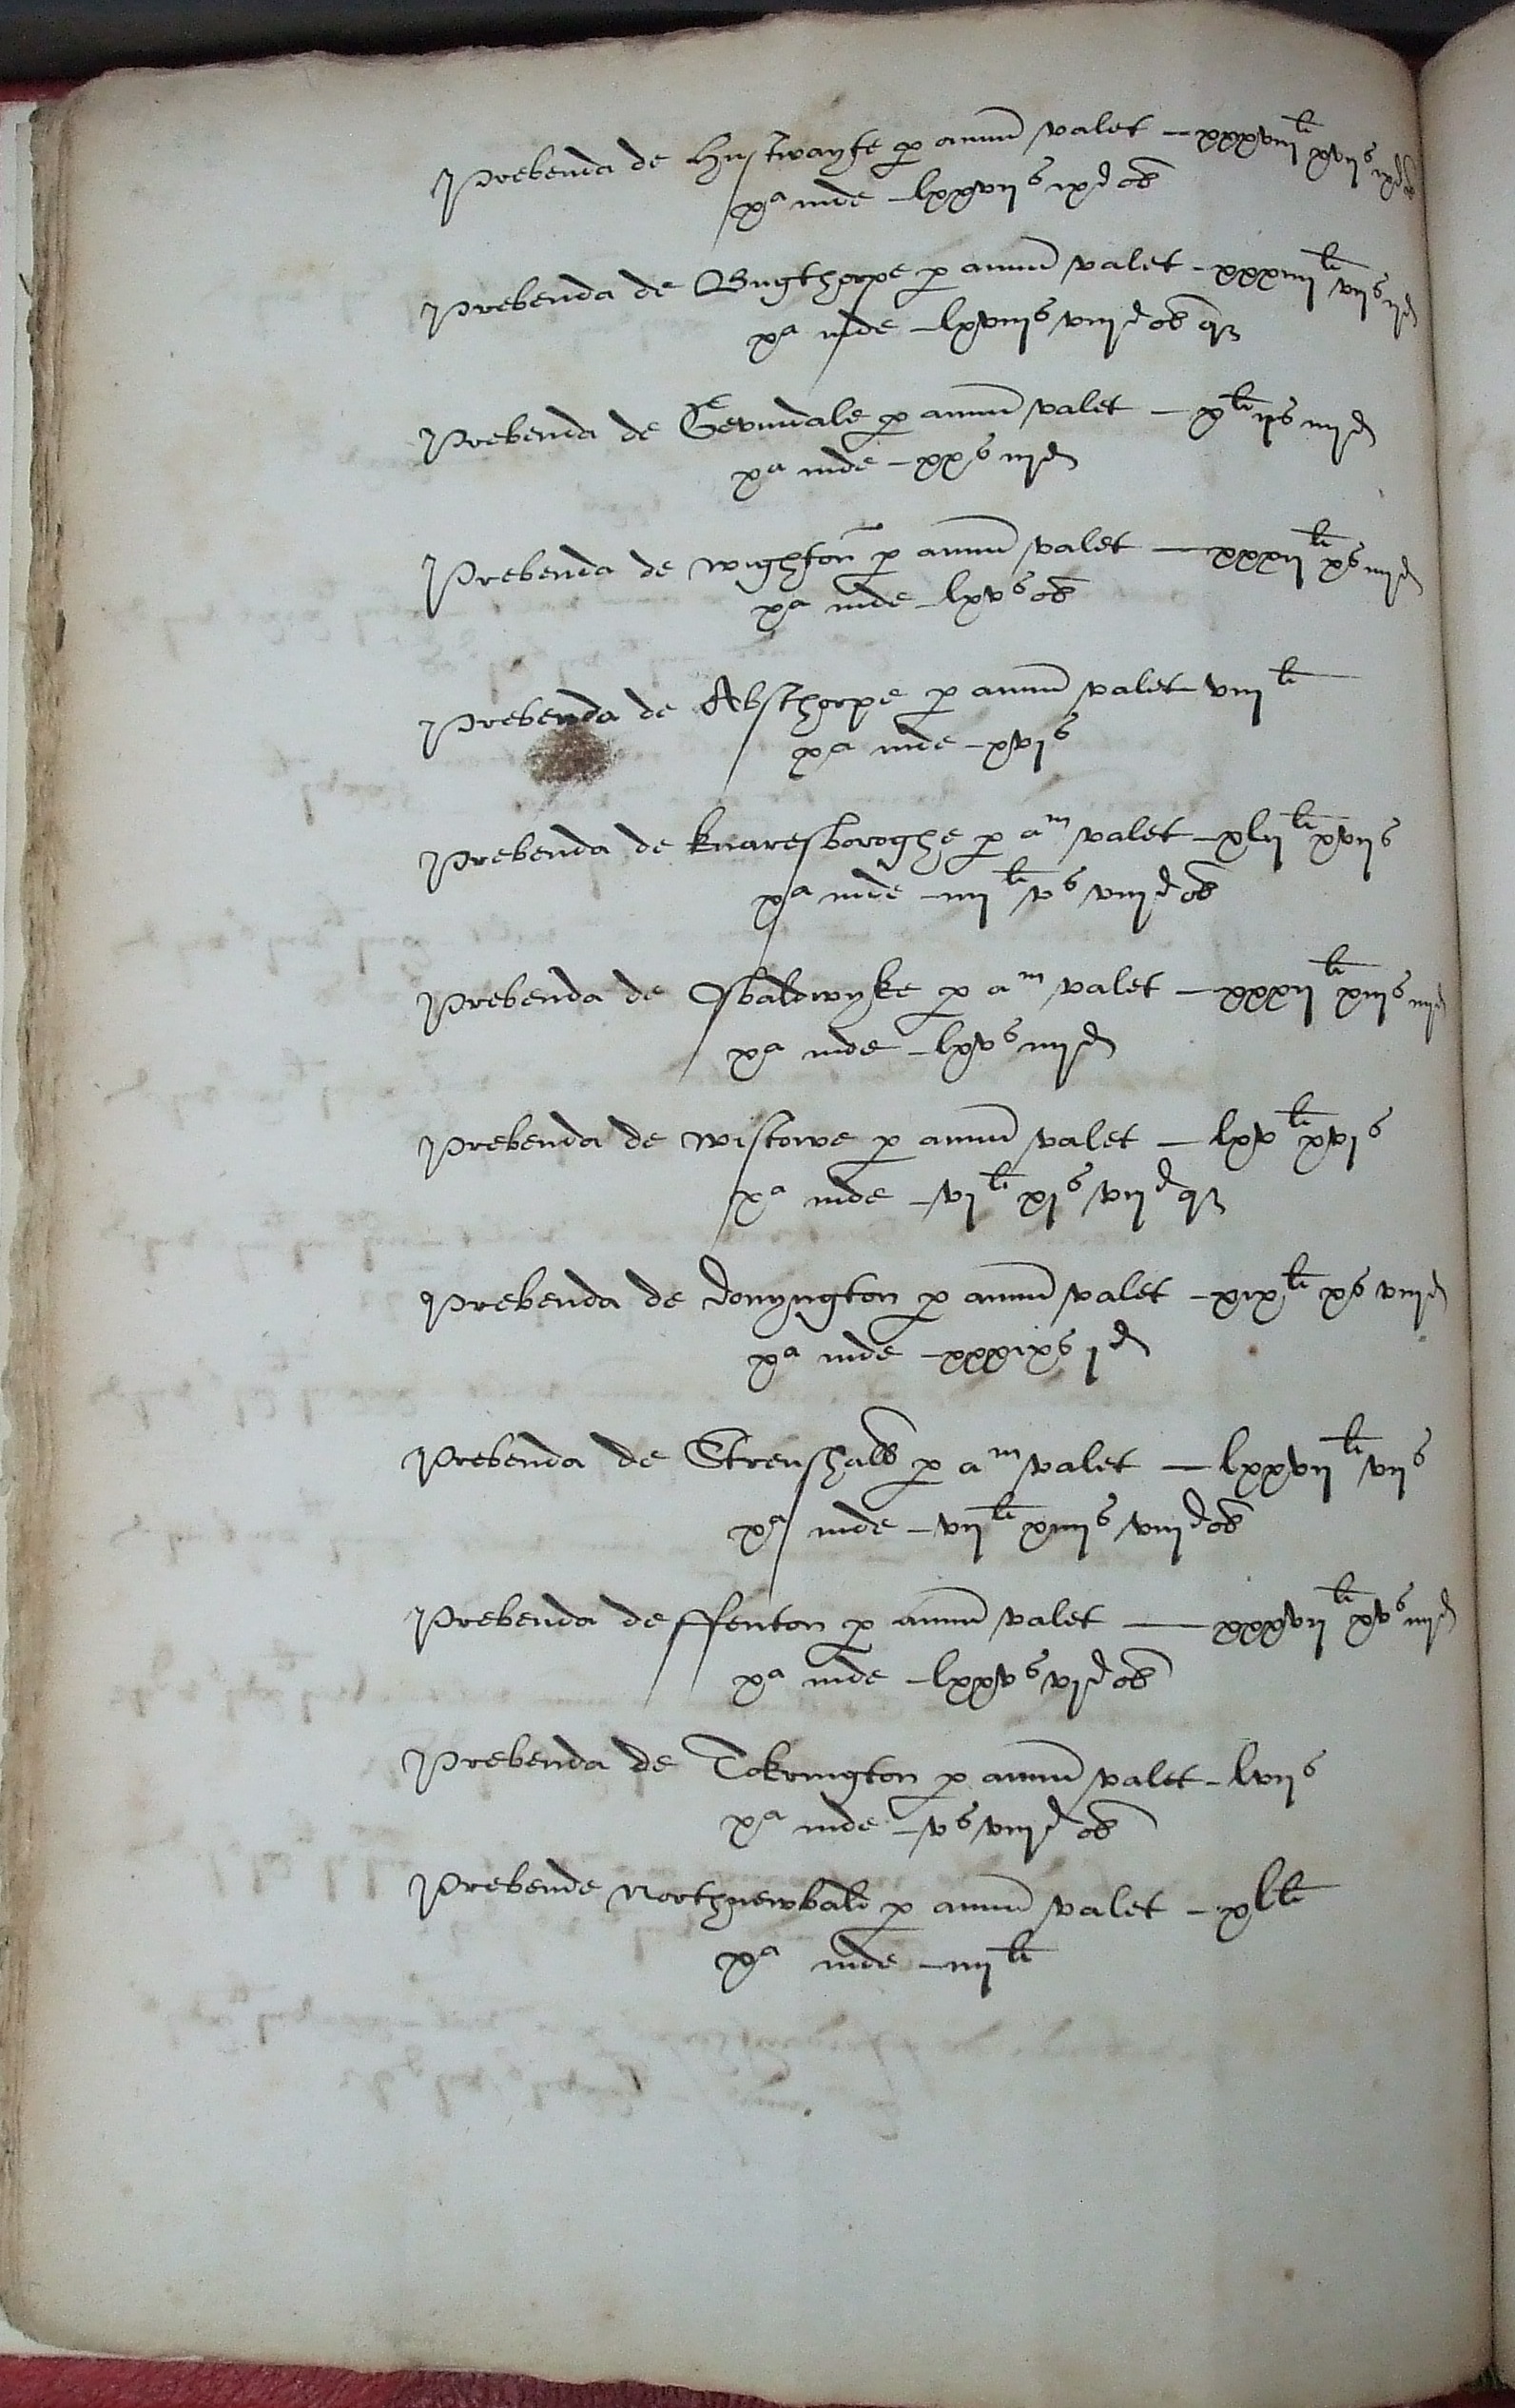 Prebenda de Hustwayte p annu valet – xxxviii li xvii s ix d ob
xa inde – lxxvii s ix d ob
Prebenda de Bugthorpe p annu valet – xxxiiii li vii s ii d
xa inde – lxviii s viii d ob qz
Prebenda de Gevendale p annu valet – x li ii s iiii d
xa inde – xx s iii d
Prebenda de wighton p annu valet – xxxii li x s iiii d
xa inde – lxv s ob
Prebenda de Apsthorpe p annu valet viii li
xa inde – xvi s
Prebenda de knaresboroghe p am valet – xlii li xvii s
xa inde – iiii li v s viii d ob
Prebenda de Osbaldwyke p am valet – xxxii li xiii s iiii d
xa inde – lxv s iiii d
Prebenda de wistowe p annu valet – lxv li xvi s
xa inde – vi li xi s vii d qz
Prebenda de donyngton p annu valet – xix li x s viii d
xa inde – xxxix s i d
Prebenda de Strenshall p am valet – lxxvii li vii s
xa inde – vii li xiiii s viii d ob
Prebenda de ffenton p annu valet – xxxvii li xv s iiii d
xa inde – lxxv s vi d ob
Prebenda de Tokrington p annu valet – lvii s
xa inde – v s viii d ob
Prebende Northnewbald p annu valet – xl li
xa inde – iiii li